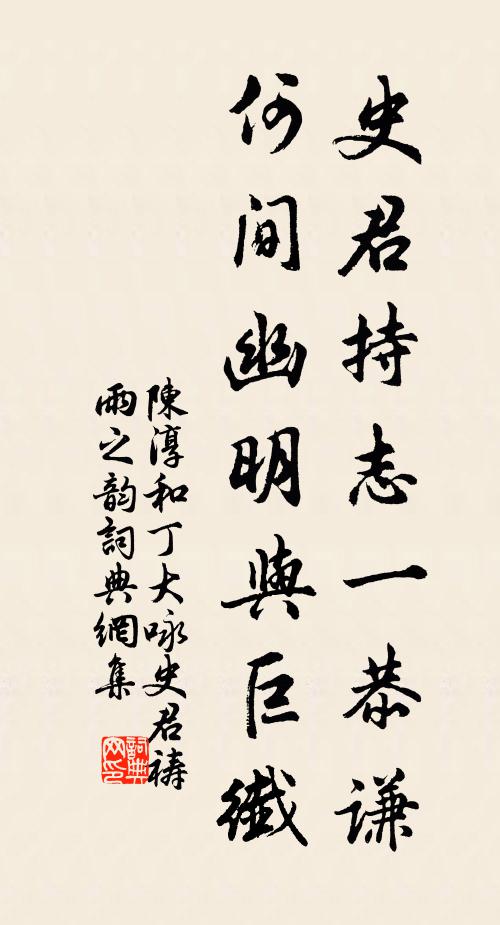 史君持志一恭謙
何間幽明與巨纖
陳淳和丁大咏史君禱
雨之韵詞典網集
詞典网印